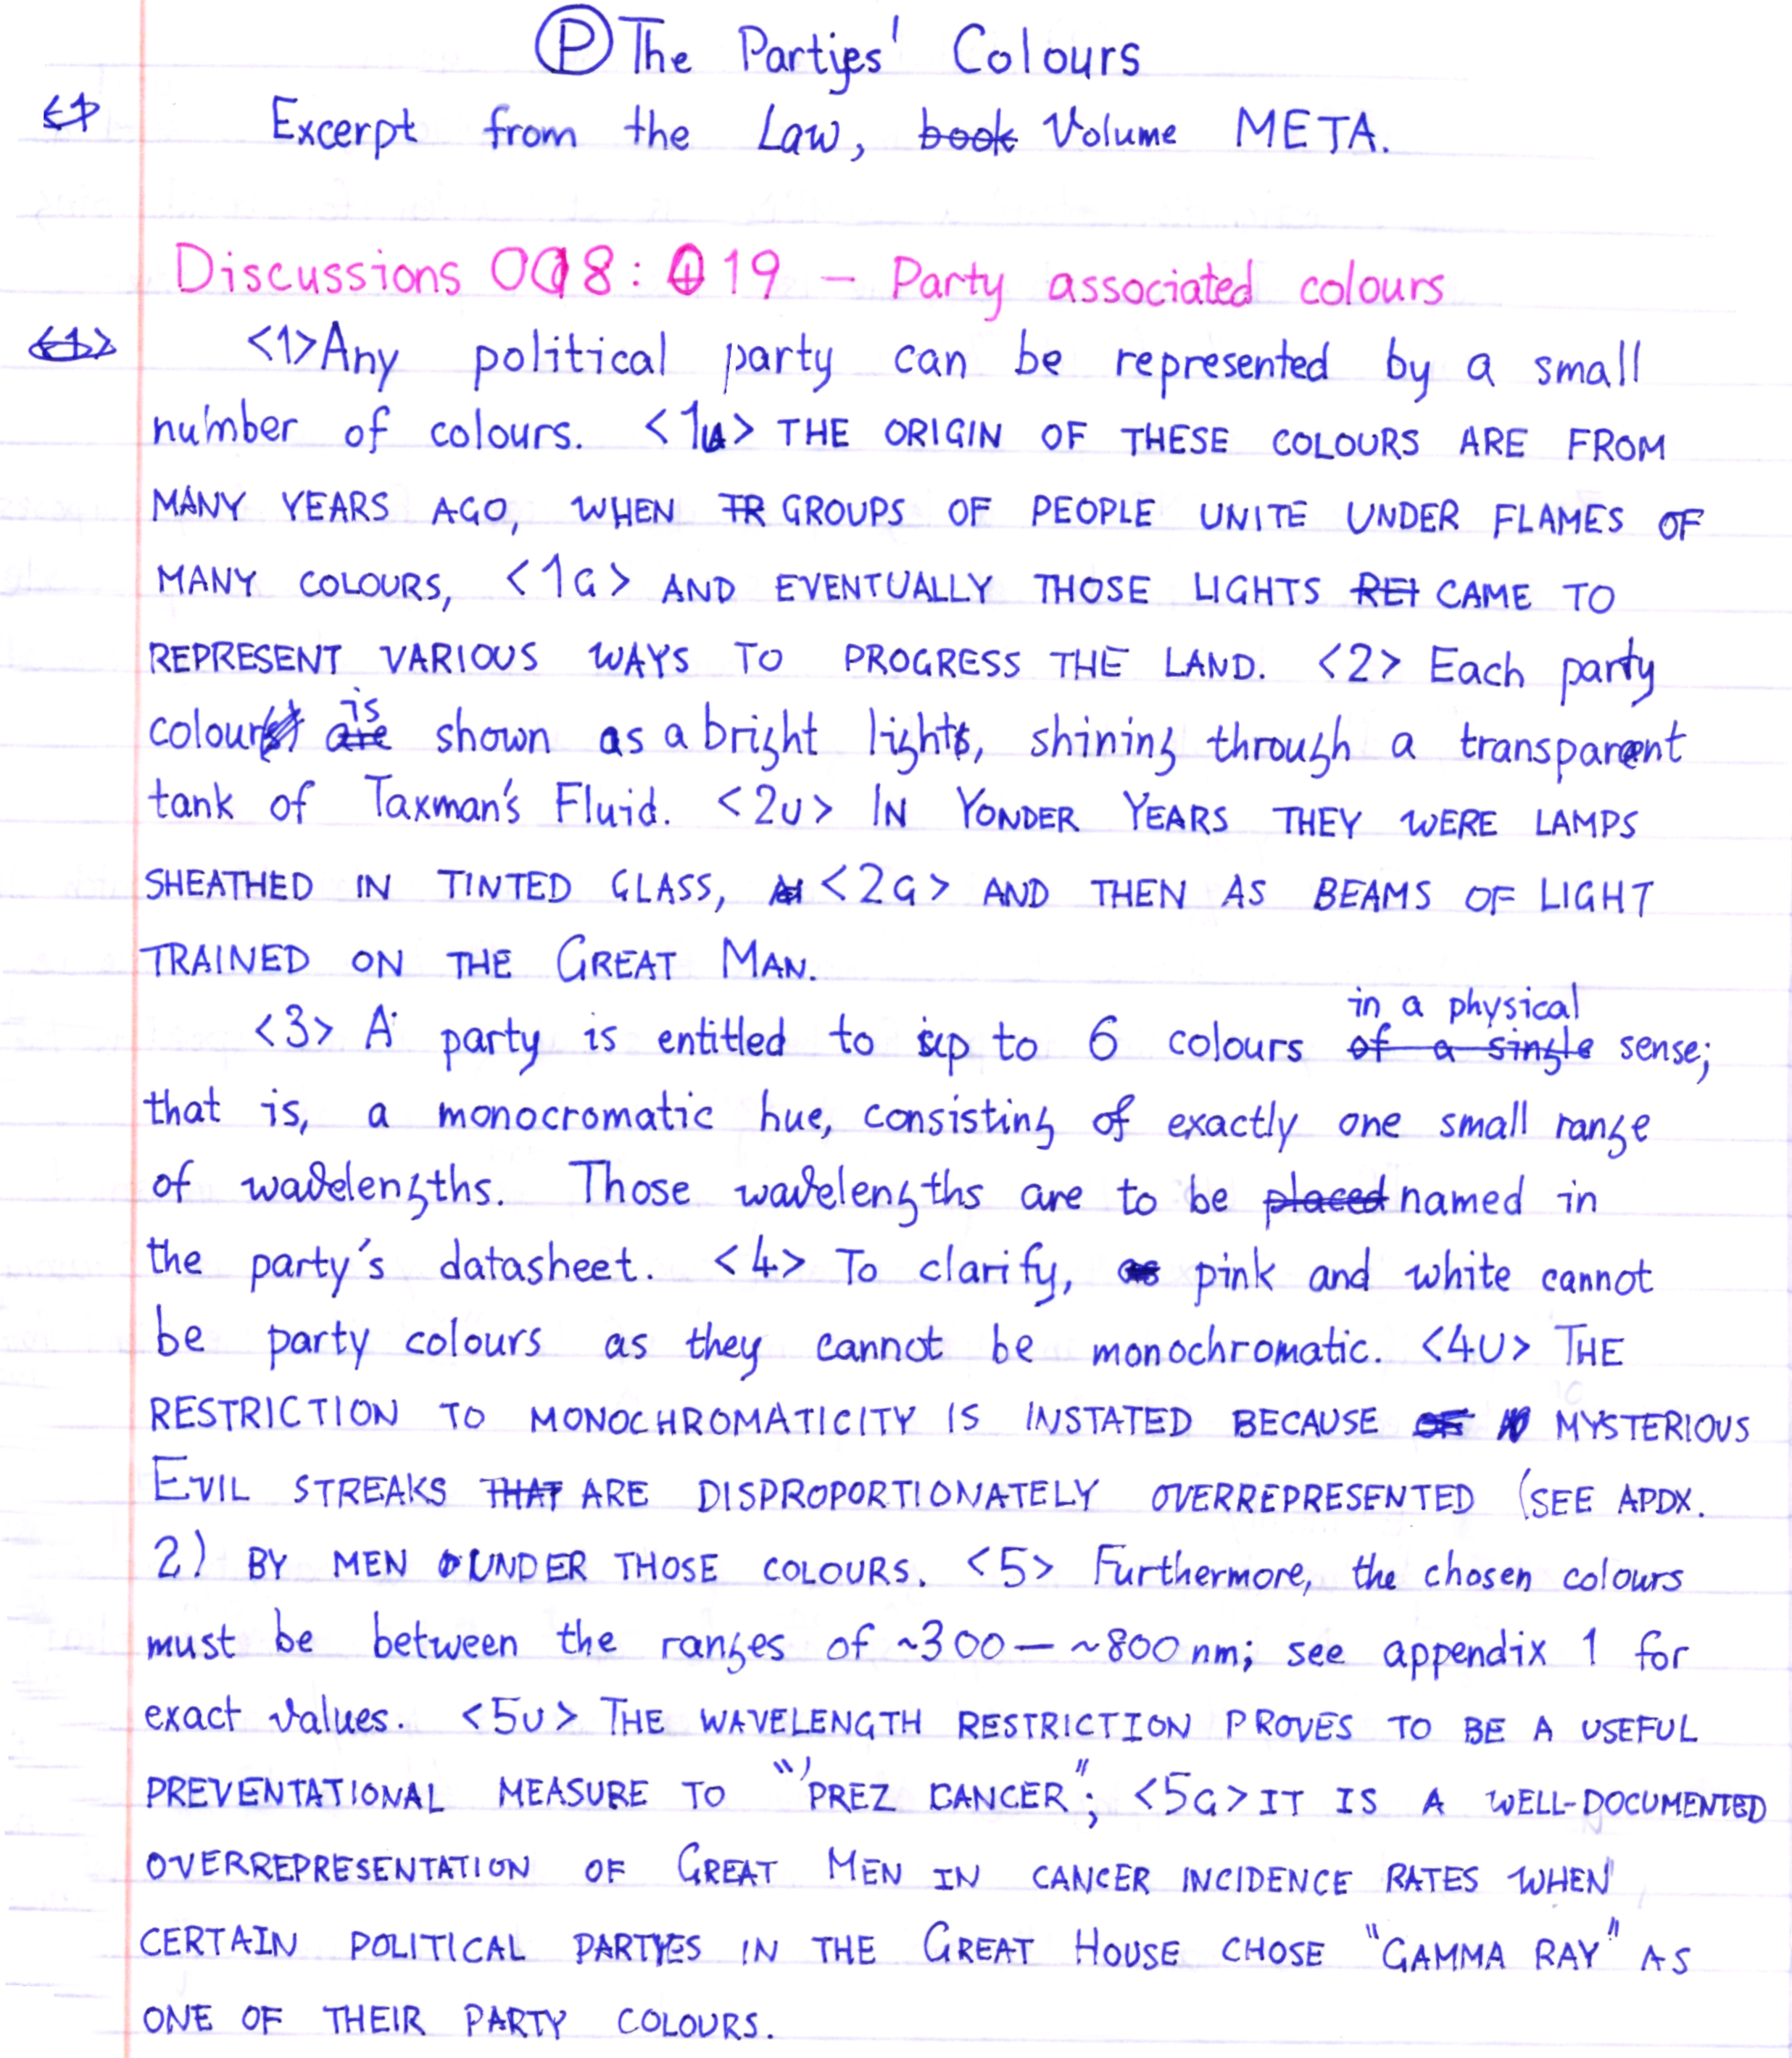 Ⓟ The Parties' Colours
Excerpt from the Law, ~~book~~ Volume META.
Discussions 018:019 – Party associated colours
<1>Any political party can be represented by a small
number of colours. <1u> THE ORIGIN OF THESE COLOURS ARE FROM
MANY YEARS AGO, WHEN ~~TR~~ GROUPS OF PEOPLE UNITE UNDER FLAMES OF
MANY COLOURS, <1a> AND EVENTUALLY THOSE LIGHTS ~~REI~~ CAME TO
REPRESENT VARIOUS WAYS TO PROGRESS THE LAND. <2> Each party
colour ~~are~~ is shown as a bright light, shining through a transparent
tank of Taxman's Fluid. <2u> IN YONDER YEARS THEY WERE LAMPS
SHEATHED IN TINTED GLASS, <2a> AND THEN AS BEAMS OF LIGHT
TRAINED ON THE GREAT MAN.
<3> A party is entitled to up to 6 colours ~~of a single~~ in a physical sense;
that is, a monocromatic hue, consisting of exactly one small range
of wavelengths. Those wavelengths are to be ~~placed~~ named in
the party's datasheet. <4> To clarify, ~~as~~ pink and white cannot
be party colours as they cannot be monochromatic. <4u> THE
RESTRICTION TO MONOCHROMATICITY IS INSTATED BECAUSE ~~OF~~ MYSTERIOUS
EVIL STREAKS ~~THAT~~ ARE DISPROPORTIONATELY OVERREPRESENTED (SEE APDX.
2) BY MEN UNDER THOSE COLOURS. <5> Furthermore, the chosen colours
must be between the ranges of ~300 — ~800 nm; see appendix 1 for
exact values. <5u> THE WAVELENGTH RESTRICTION PROVES TO BE A USEFUL
PREVENTATIONAL MEASURE TO "'PREZ CANCER"; <5a> IT IS A WELL-DOCUMENTED
OVERREPRESENTATION OF GREAT MEN IN CANCER INCIDENCE RATES WHEN
CERTAIN POLITICAL PARTIES IN THE GREAT HOUSE CHOSE "GAMMA RAY" AS
ONE OF THEIR PARTY COLOURS.